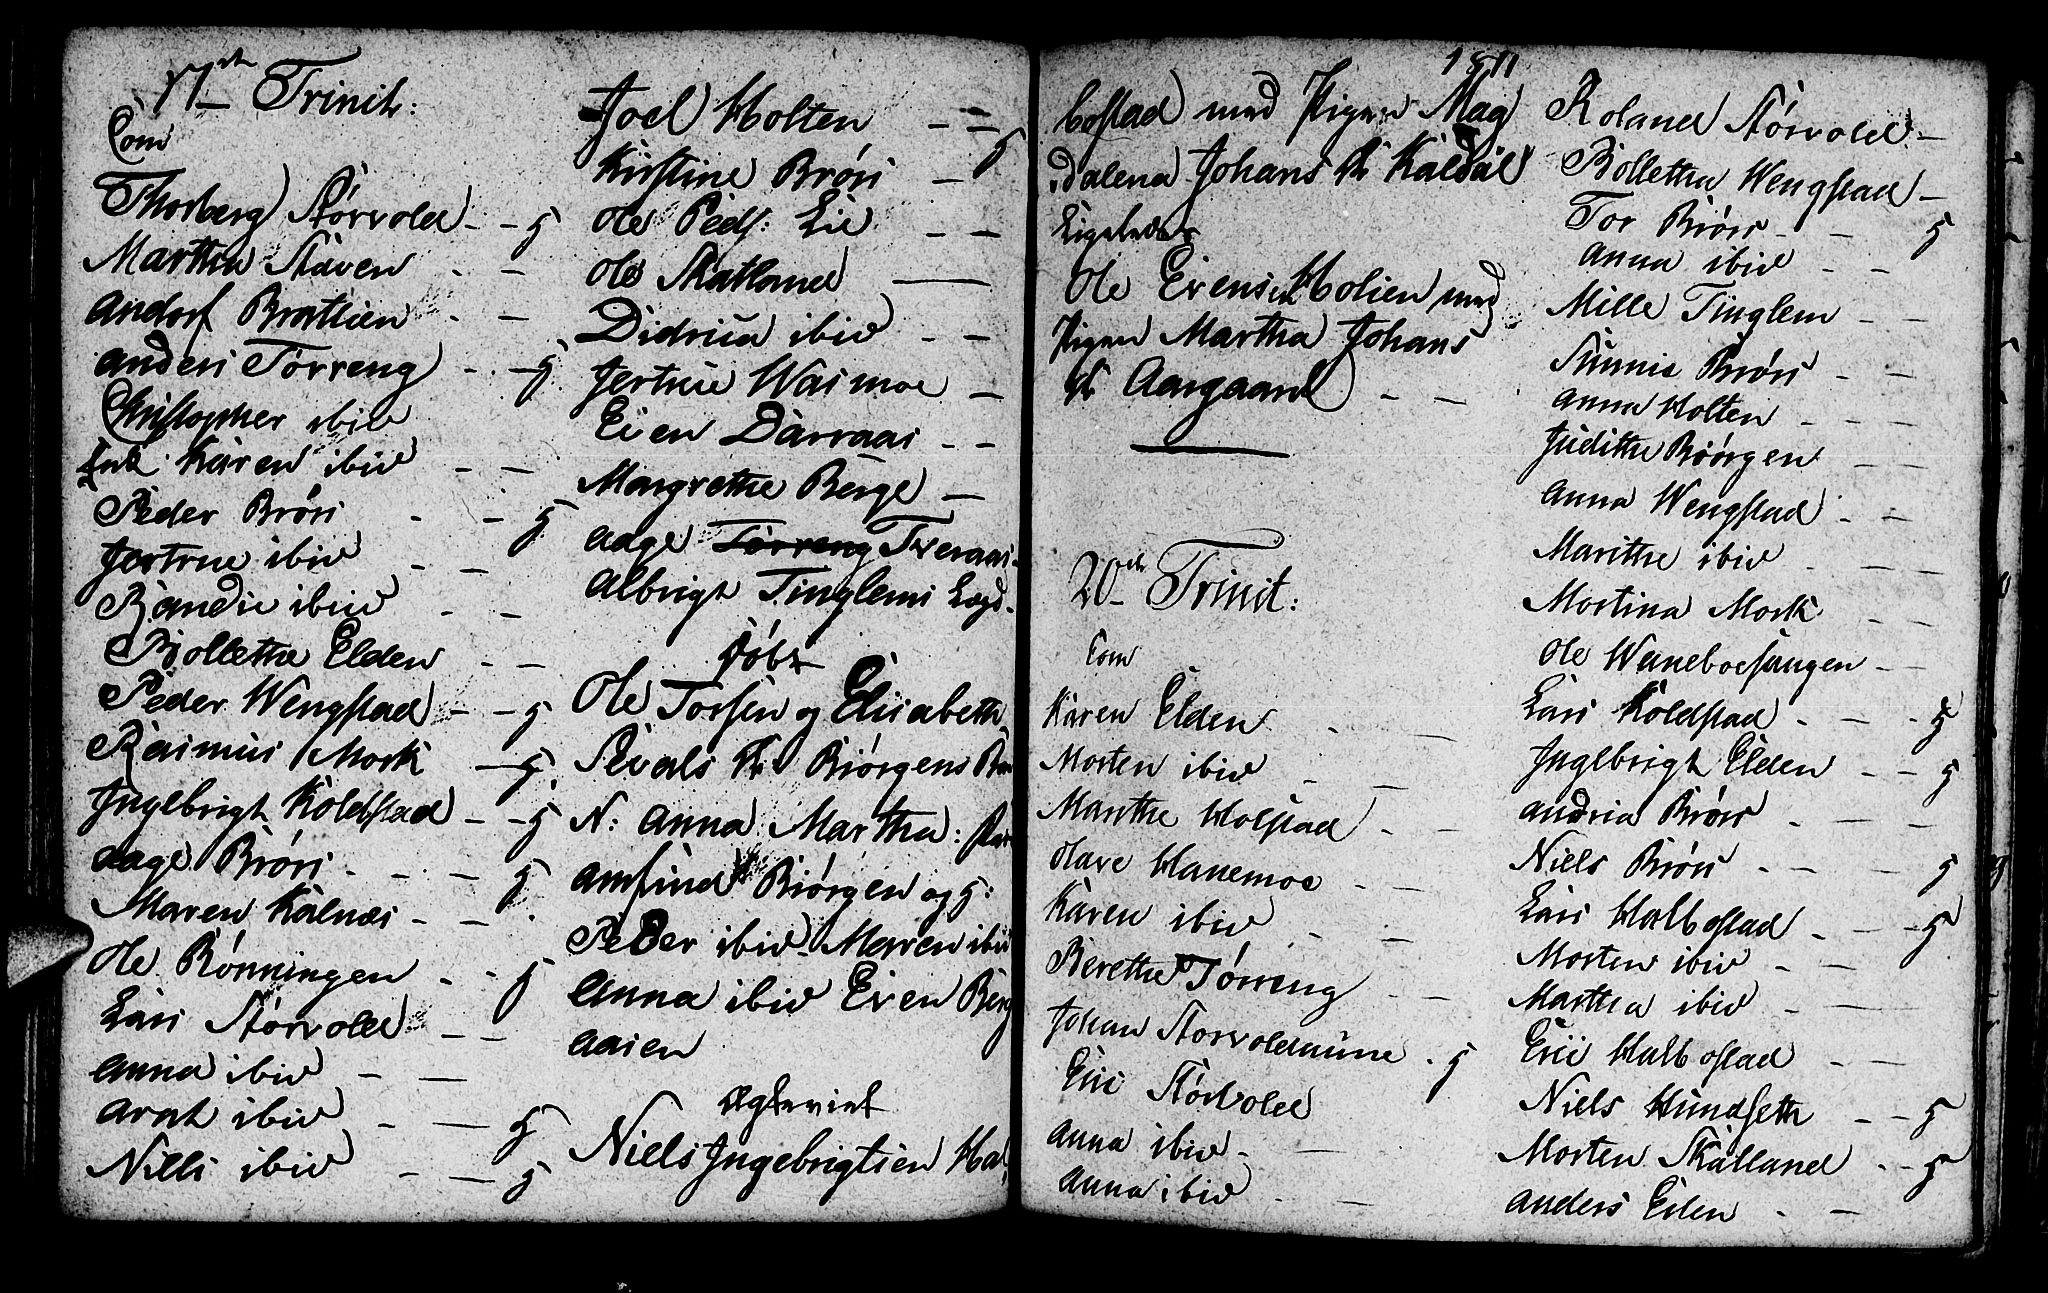 17de Trinit:
Com
Thorberg Størvold - - 5
Martha Staven - -
Andorf Brattien - -
Anders Tørreng - - 5
Christopher ibid
Enk. Karen ibid - -
Peder Brørs - - 5
Jertrue ibid - -
Randie ibid - -
Bollethe Elden - -
Peder Wengstad - - 5
Rasmus Mork - 5
Ingebrigt Koldstad - - 5
Aage Brørs - - - 5
Maren Kalnæs - -
Ole Rønningen - - 5
Lars Størvold - -
Anna ibid - -
Arnt ibid - - 5
Niels ibid - - 5
Joel Holten - - 5
Kirstine Brørs -
Ole Peds: Lie - -
Ole Skatland -
Didrica ibid - -
Jertrue Wasmoe -
Even Darraas - -
Margrethe Berge -
Aage Tørreng Tveraas -
Albrigt Tinglems Lægd -
Døbt
Ole Torsen og Elisabeth
Sivals Dr Biørgens Bar
N: Anna Martha: Far
Amfind Biørgen og g:
Peder ibid Maren ibid
Anna ibid Even Berg
aasen
Ægteviet
Niels Ingebrigtsen Hal
1811
bostad med Pigen Mag
dalena Johans Dr Kaldal
Ligeledes
Ole Evensen Holien med
Pigen Martha Johans
Dr Aargaard - -
20de Trinit:
Com
Karen Elden - -
Morten ibid - -
Marthe Holstad - -
Olave Hanemoe - -
Karen ibid - -
Berethe Tørreng - -
Johan Storvoldaune - 5
Eric Størvold
Anna ibid - -
Anna ibid - -
Roland Størvold -
Bollethe Wengstad -
Tor Brørs - - 5
Anna ibid - -
Mille Tinglem - -
Sunnis Brørs - -
Anna Holten - - -
Judithe Biørgen - -
Anna Wengstad - -
Marithe ibid - - -
Mortina Mork - -
Ole Waneboesaugen - -
Lars Koldstad - - - 5
Ingebrigt Elden - - 5
Andrea Brørs - - -
Niels Brørs - - 5
Lars Halbostad - - 5
Morten ibid - -
Martha ibid - -
Eric Halbostad - -
Niels Hundseth - - 5
Morten Skatland - - 5
Anders Eilen - -